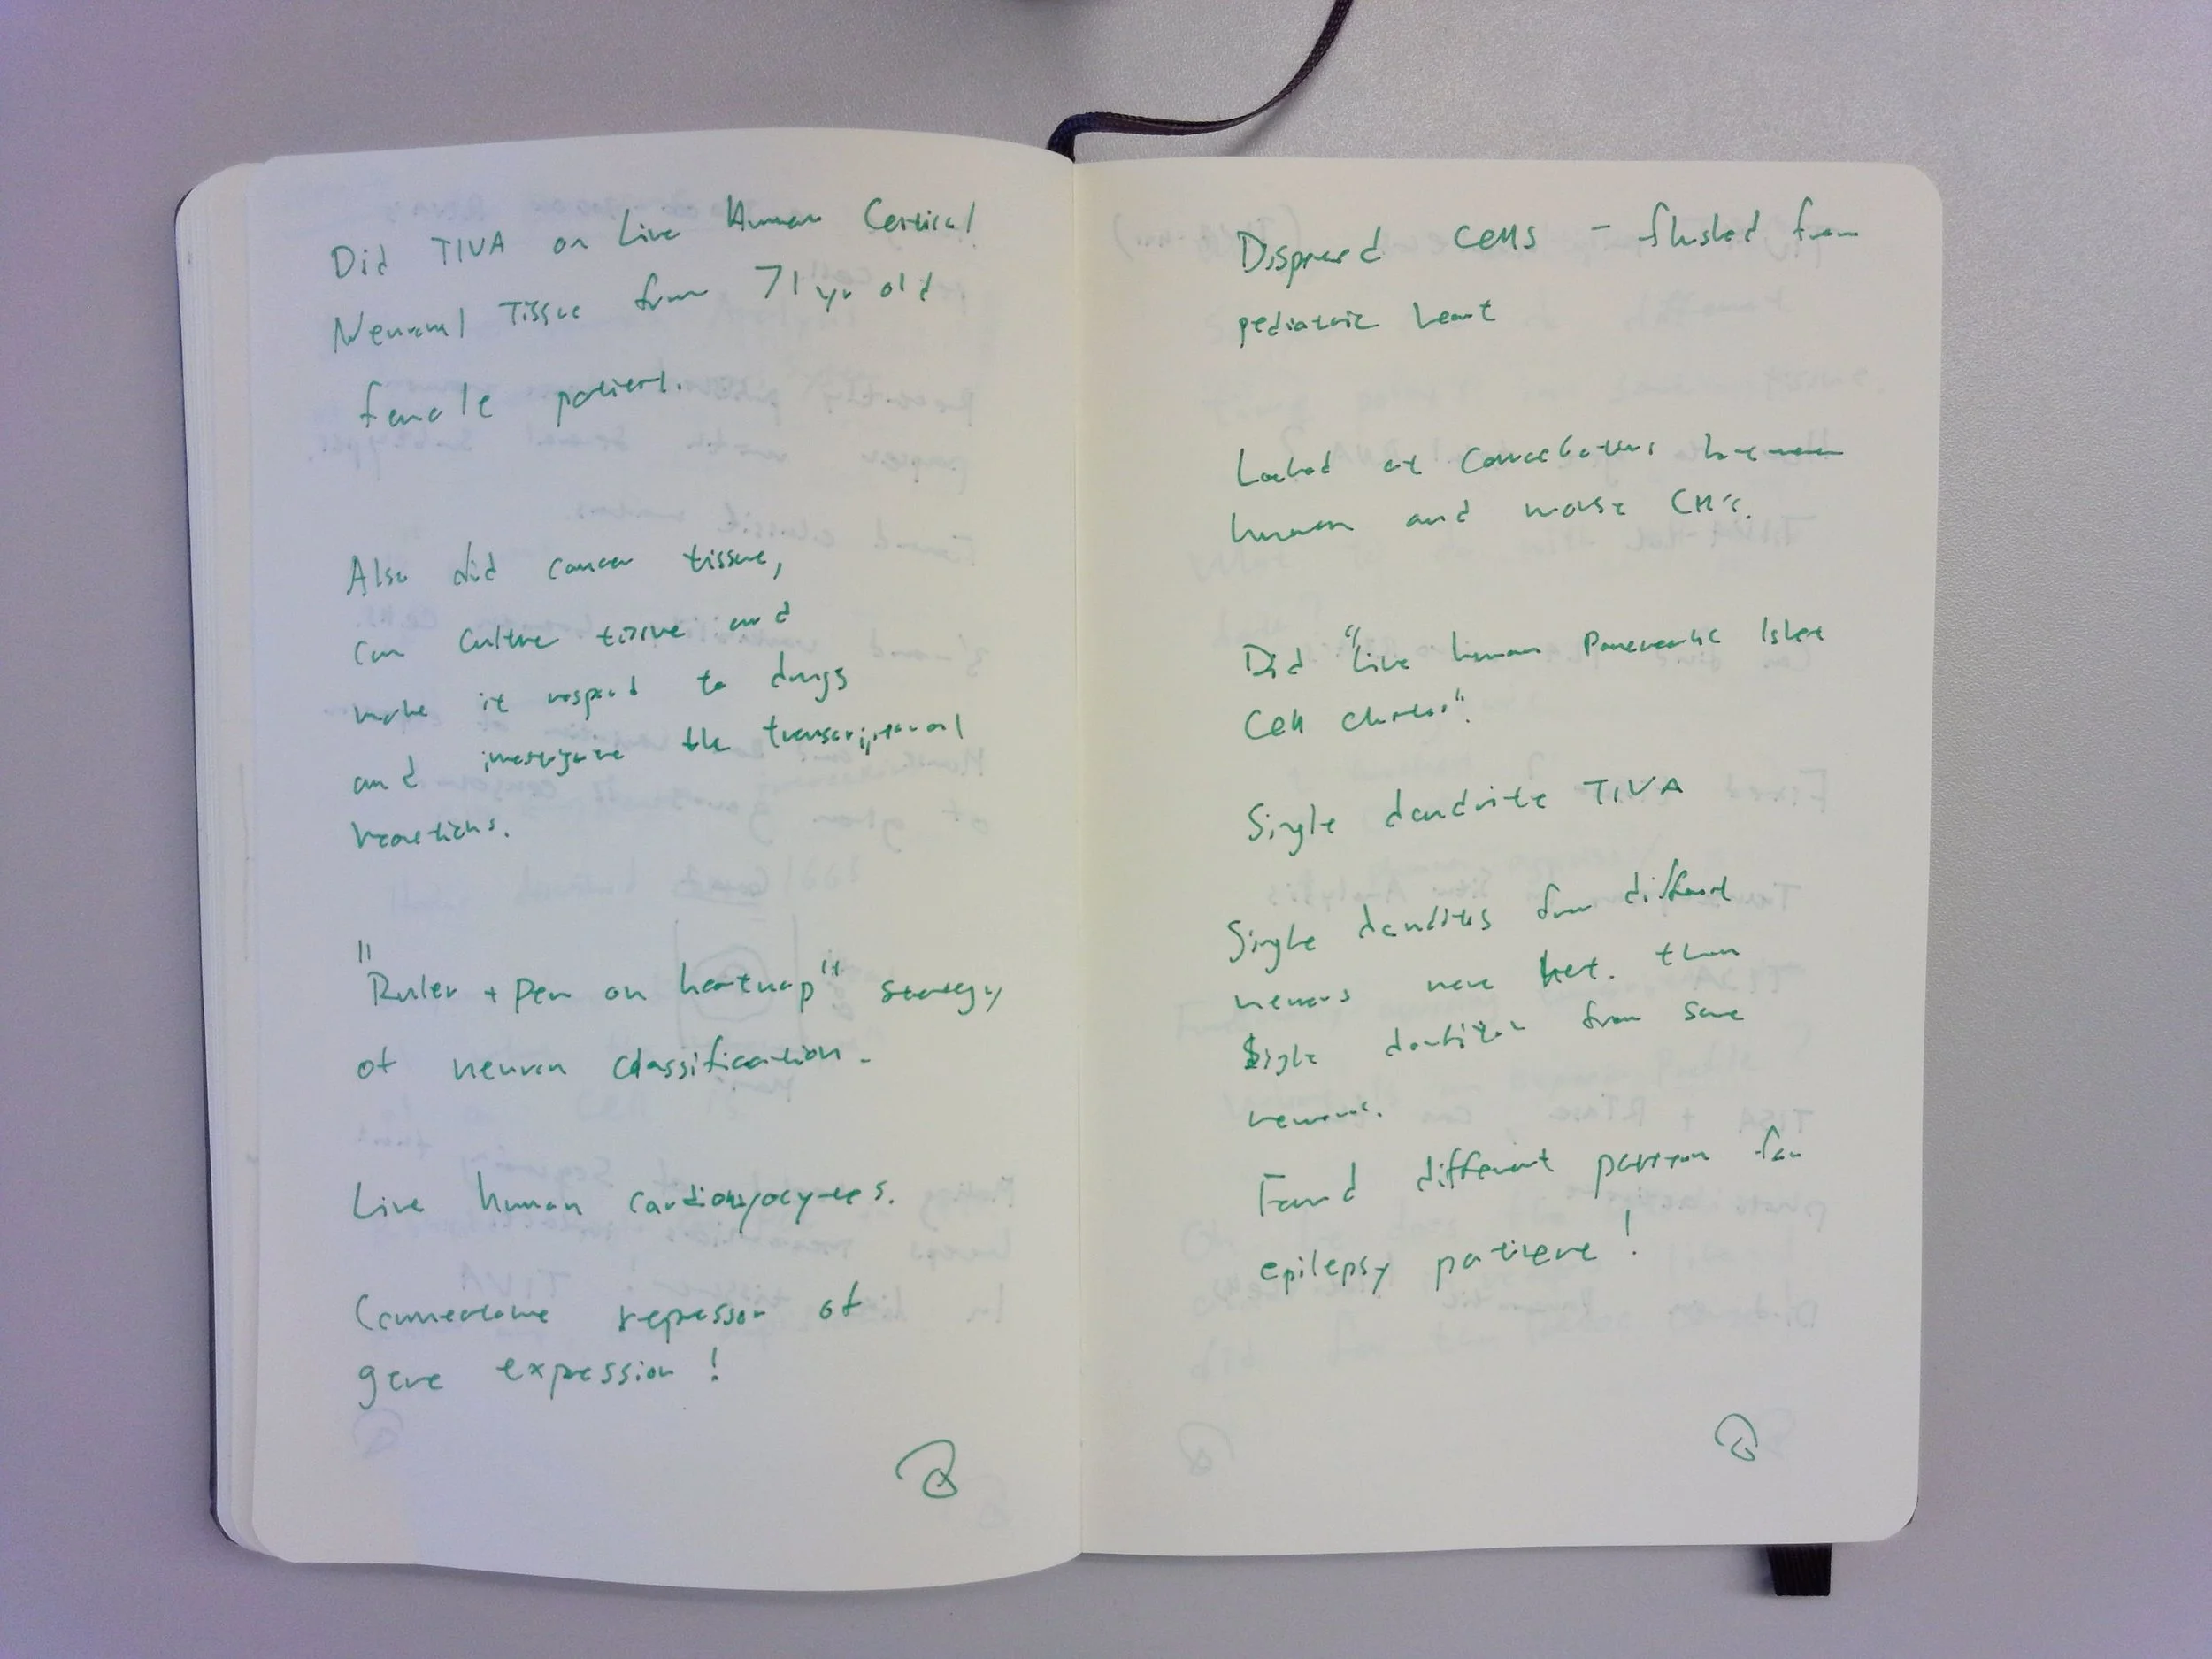 Did TIVA on Live Human Cortical
Neuronal Tissue from 71 yr old
female patient.
Also did cancer tissue,
can culture tissue and
make it respond to drugs
and investigate the transcriptional
reactions.
"Ruler + pen on heatmap" strategy
of neuron classification.
Live human cardiomyocytes.
Connectome repressor of
gene expression!
Dispersed cells - flushed from
pediatric heart
Looked at correlations between
human and mouse CM's.
Did "Live human Pancreatic Islet
Cell clusters".
Single dendrite TIVA
Single dendrites from different
neurons more het. than
single dendrites from same
neurons.
Found different pattern for
epilepsy patient!